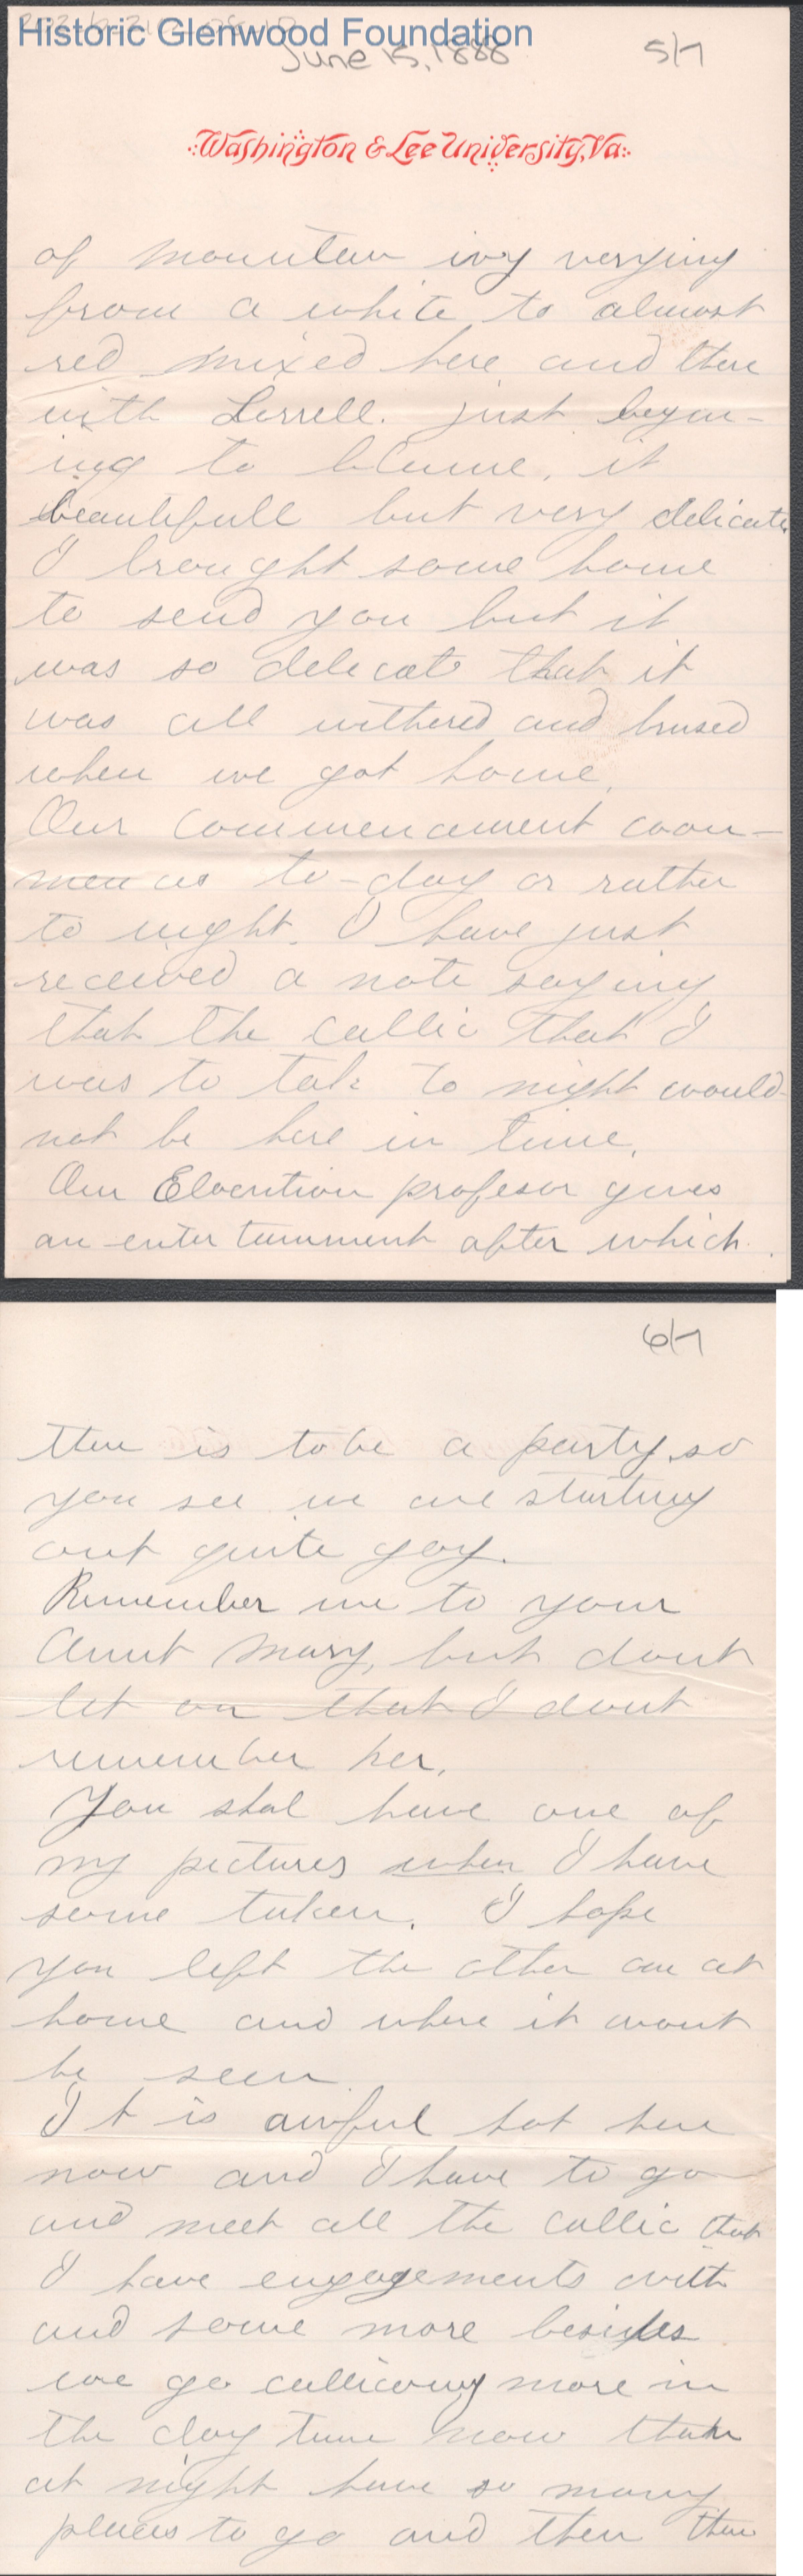 Historic Glenwood Foundation
June 15, 1888 5/7
Washington & Lee University, Va.
of mountain ivy verying
from a white to almost
red mixed here and there
with Lorrell. just begun-
ing to blume, it
beautifull but very delicate
I brought some home
to send you but it
was so delicate that it
was all withered and brused
when we got home.
Our commencement com-
mences to-day or rather
to night. I have just
received a note saying
that the callic that I
was to take to night would
not be here in time.
Our Elocution profesor gives
an entertainment after which
6/7
there is to be a party, so
you see we are starting
out quite gay.
Remember me to your
Aunt Mary, but dont
let on that I dont
remember her.
You shal have one of
my pictures when I have
some taken. I hope
you left the other one at
home and where it wont
be seen.
It is awful hot here
now and I have to go
and meet all the callic that
I have engagements with
and some more besides
we go callicoing more in
the day time now than
at night have so many
places to go and then there